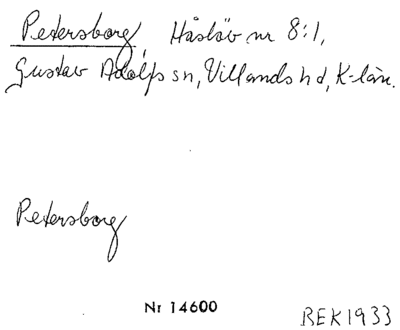 Petersborg Håslöv nr 8:1,
Gustav Adolfs sn, Villands hd, K-län.
Petersborg
Nr 14600
BEK 1933